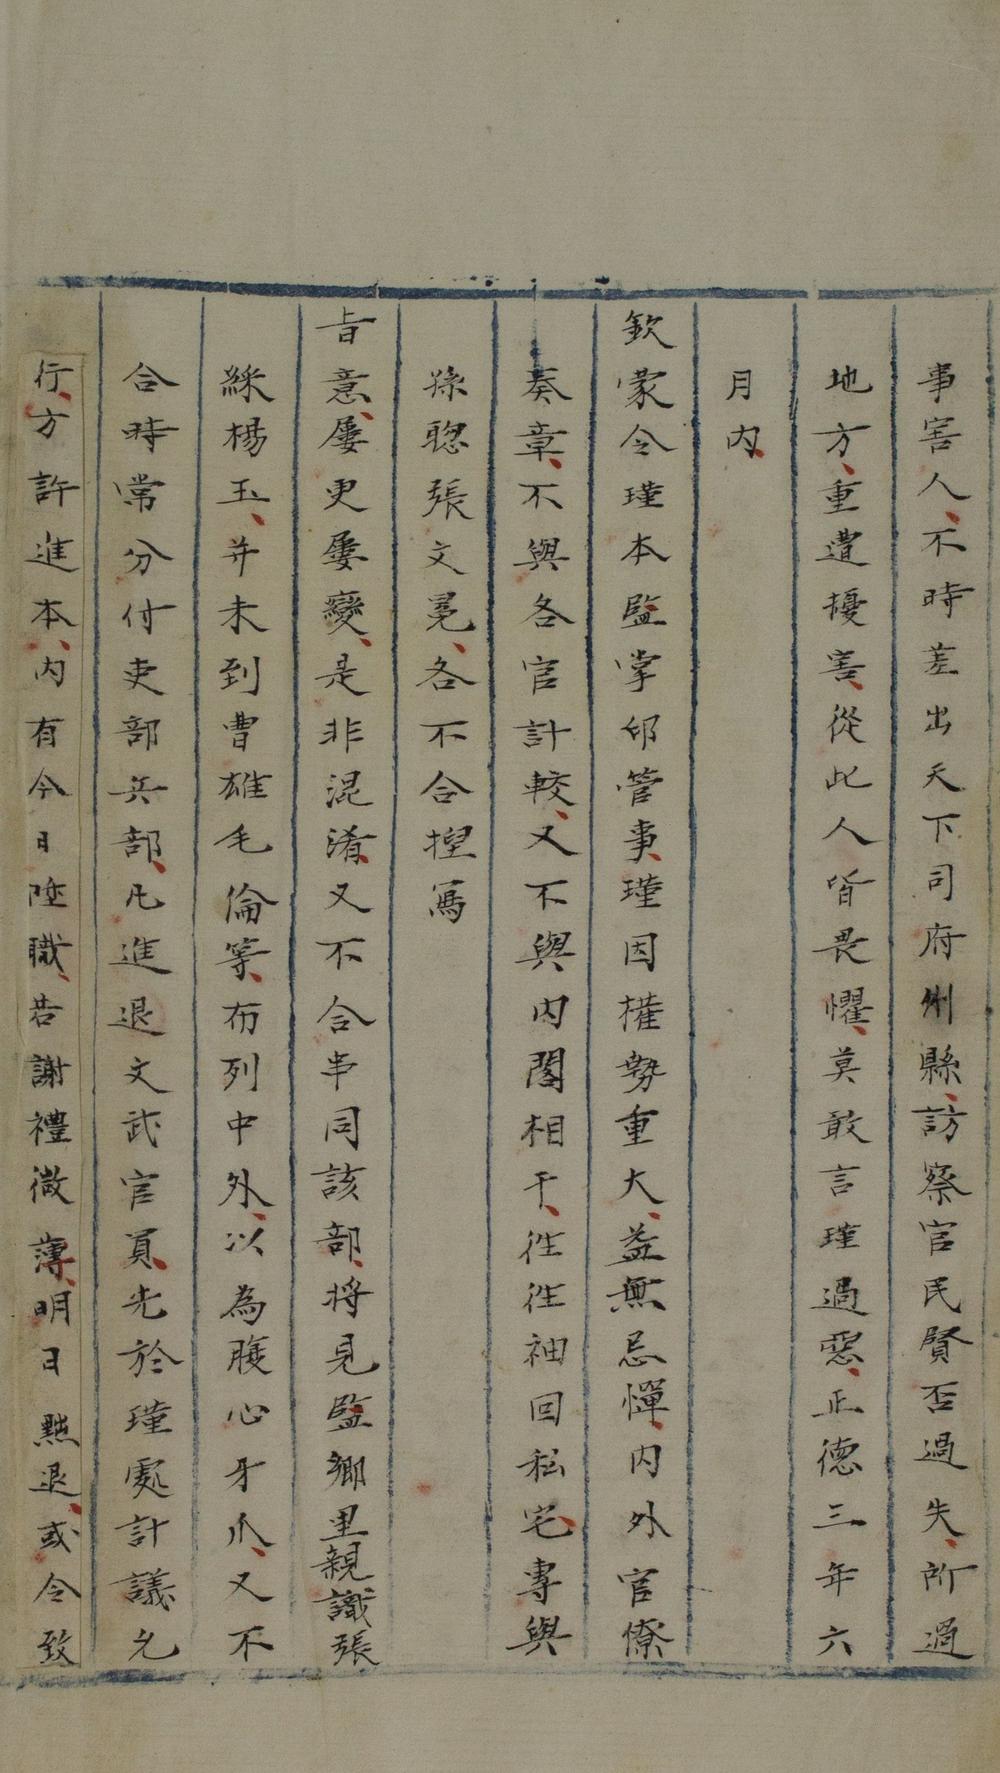 事害人、不時差出天下司府州縣、訪察官民賢否過失、所過
地方、重遭擾害、從此人皆畏懼、莫敢言瑾過惡、正德三年六
月內、
欽蒙令瑾本監掌印管事、瑾因權勢重大、益無忌憚、內外官僚
奏章、不與各官計較、又不與內閣相干、往往袖回私宅、專與
孫聰張文冕、各不合捏寫
旨意、屢更屢變、是非混淆、又不合串同該部、將見監鄉里親識張
綵楊玉、并未到曹雄毛倫等、布列中外、以為腹心牙爪、又不
合時常分付吏部兵部、凡進退文武官員、先於瑾處計議允
行、方許進本、內有今日陞職、若謝禮微薄、明日黜退、或令致